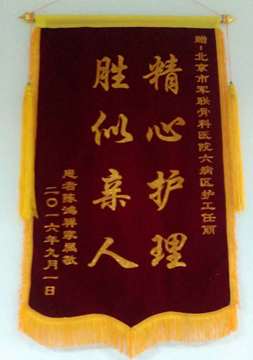 赠:北京市军联骨科医院六病区护工任丽
精心护理
胜似亲人
患者陈鸿祥家属敬
二〇一六年九月一日